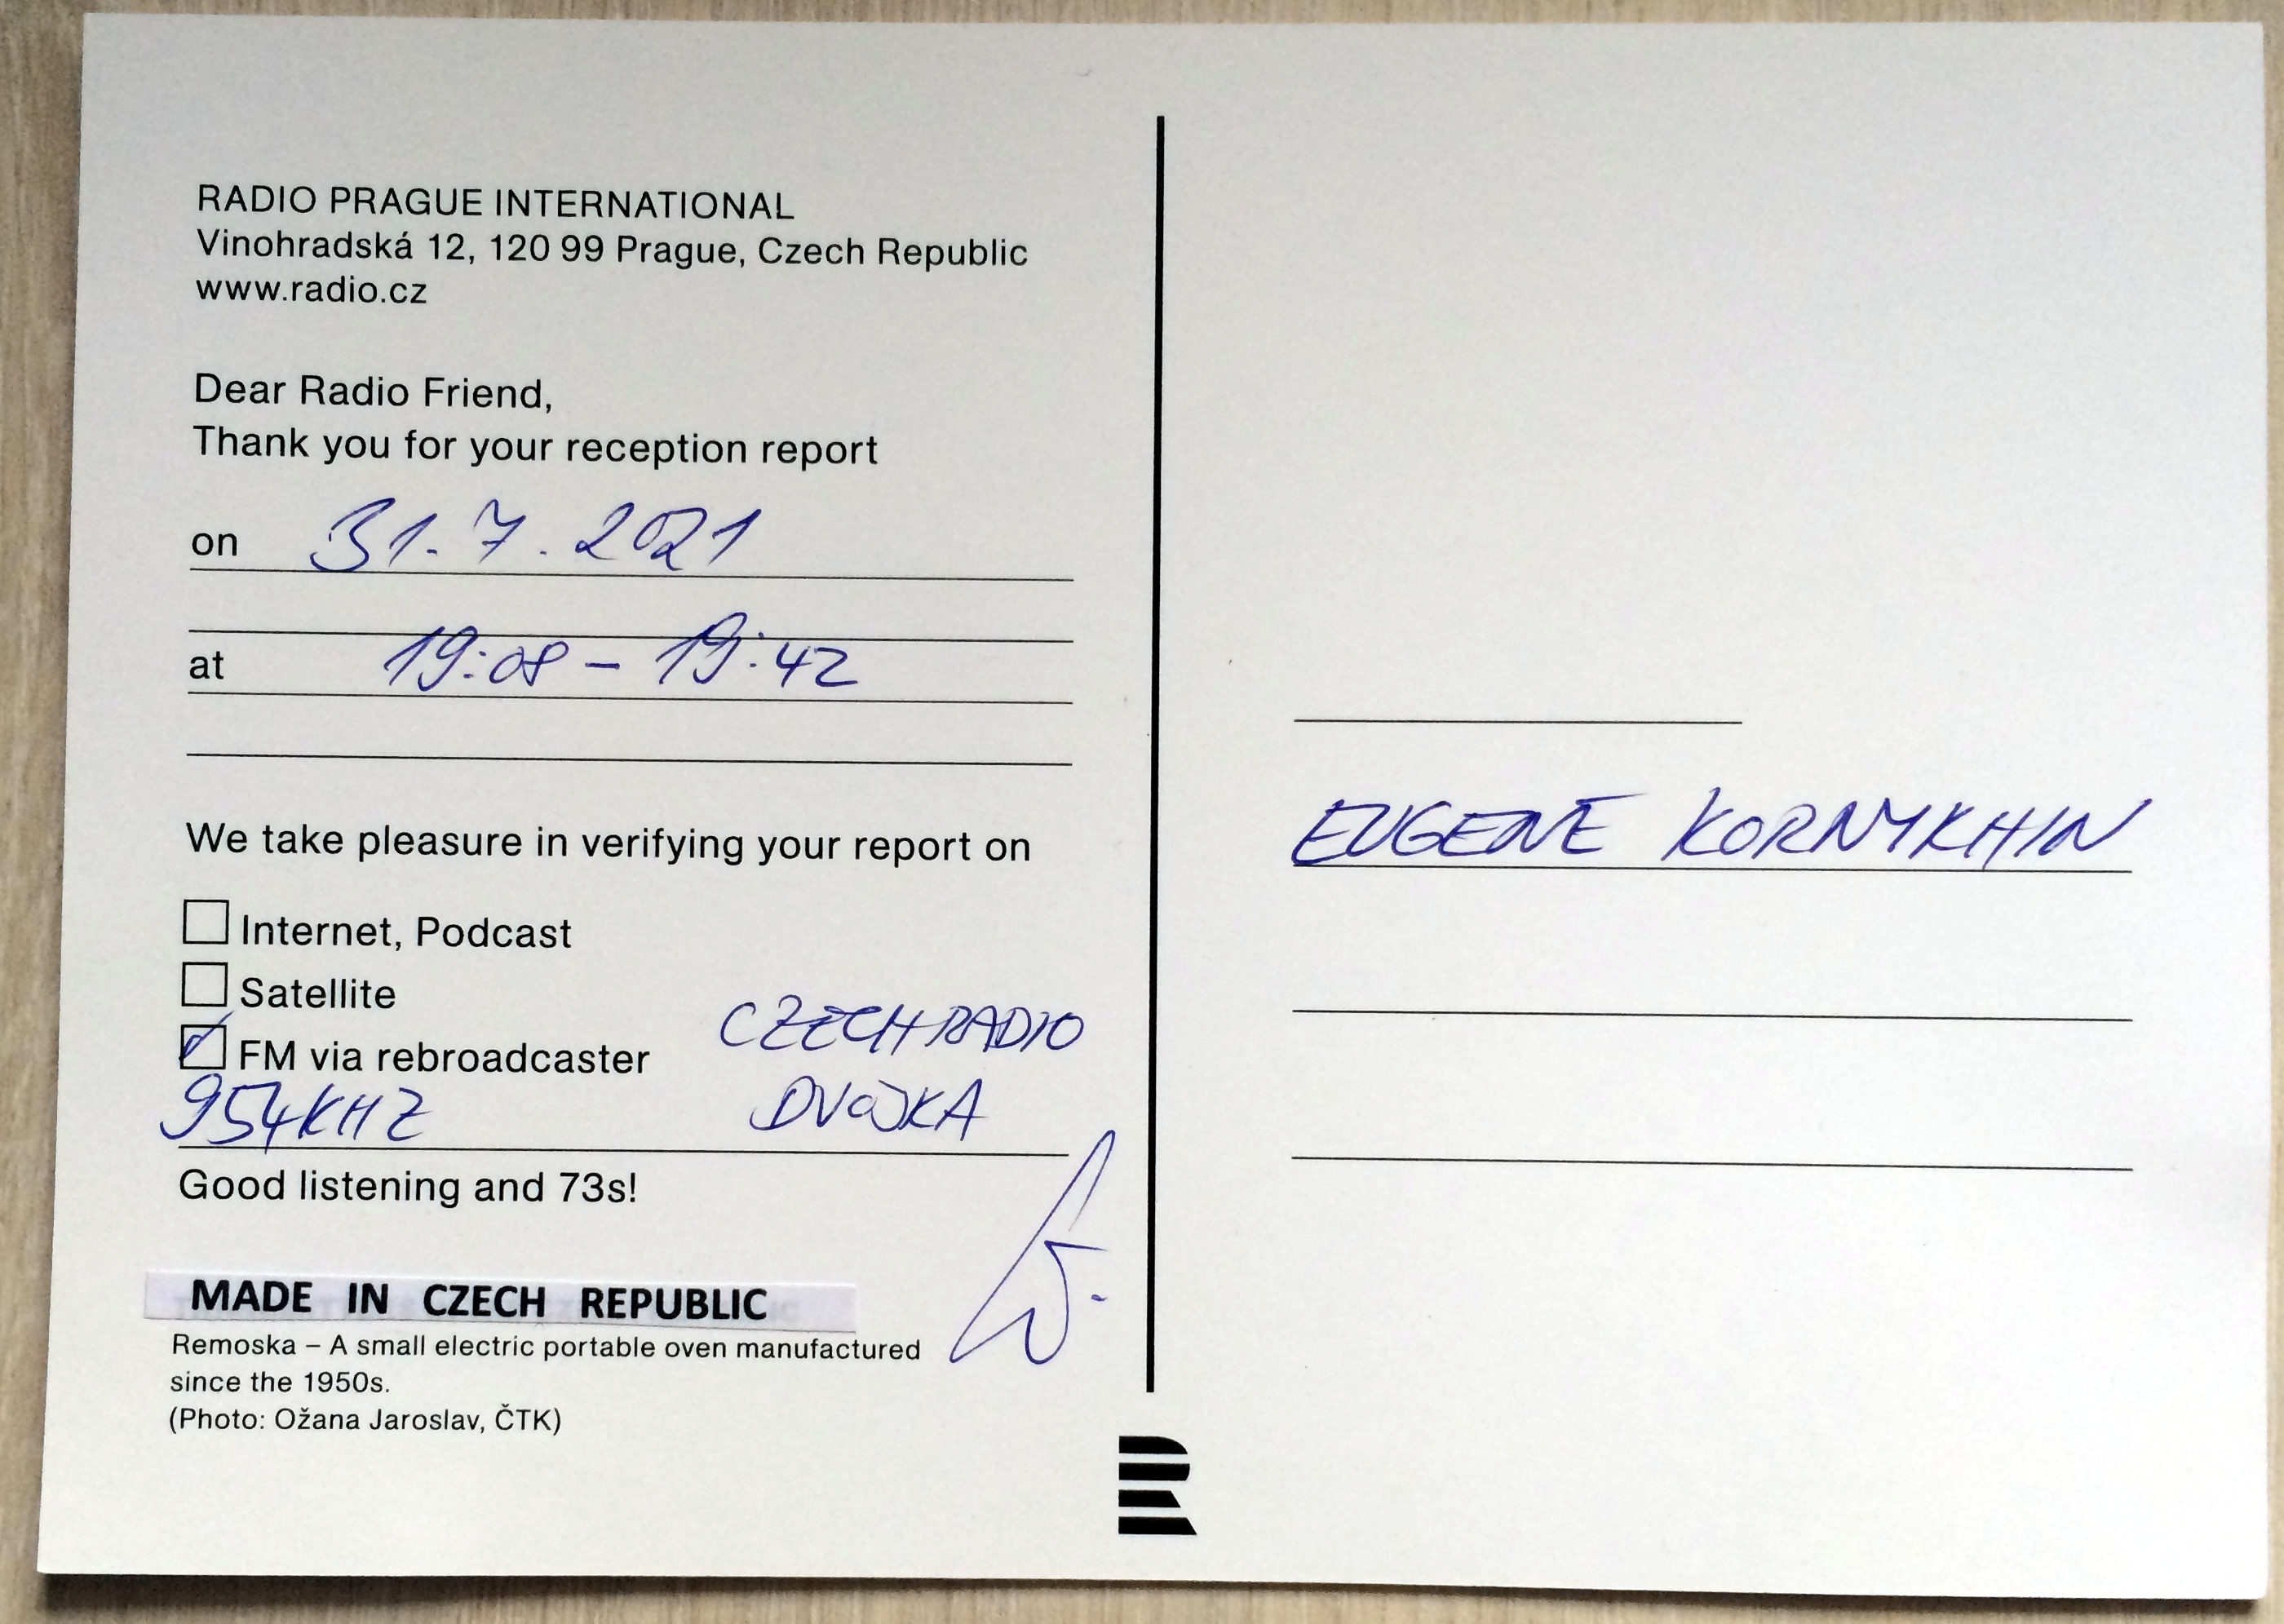 RADIO PRAGUE INTERNATIONAL
Vinohradská 12, 120 99 Prague, Czech Republic
www.radio.cz
Dear Radio Friend,
Thank you for your reception report
on 31.7.2021
at 19:08 – 19:42
We take pleasure in verifying your report on
Internet, Podcast
Satellite
FM via rebroadcaster CZECH RADIO
954KHZ DVOJKA
Good listening and 73s!
MADE IN CZECH REPUBLIC
Remoska – A small electric portable oven manufactured
since the 1950s.
(Photo: Ožana Jaroslav, ČTK)
EUGENE KORNYKHIN